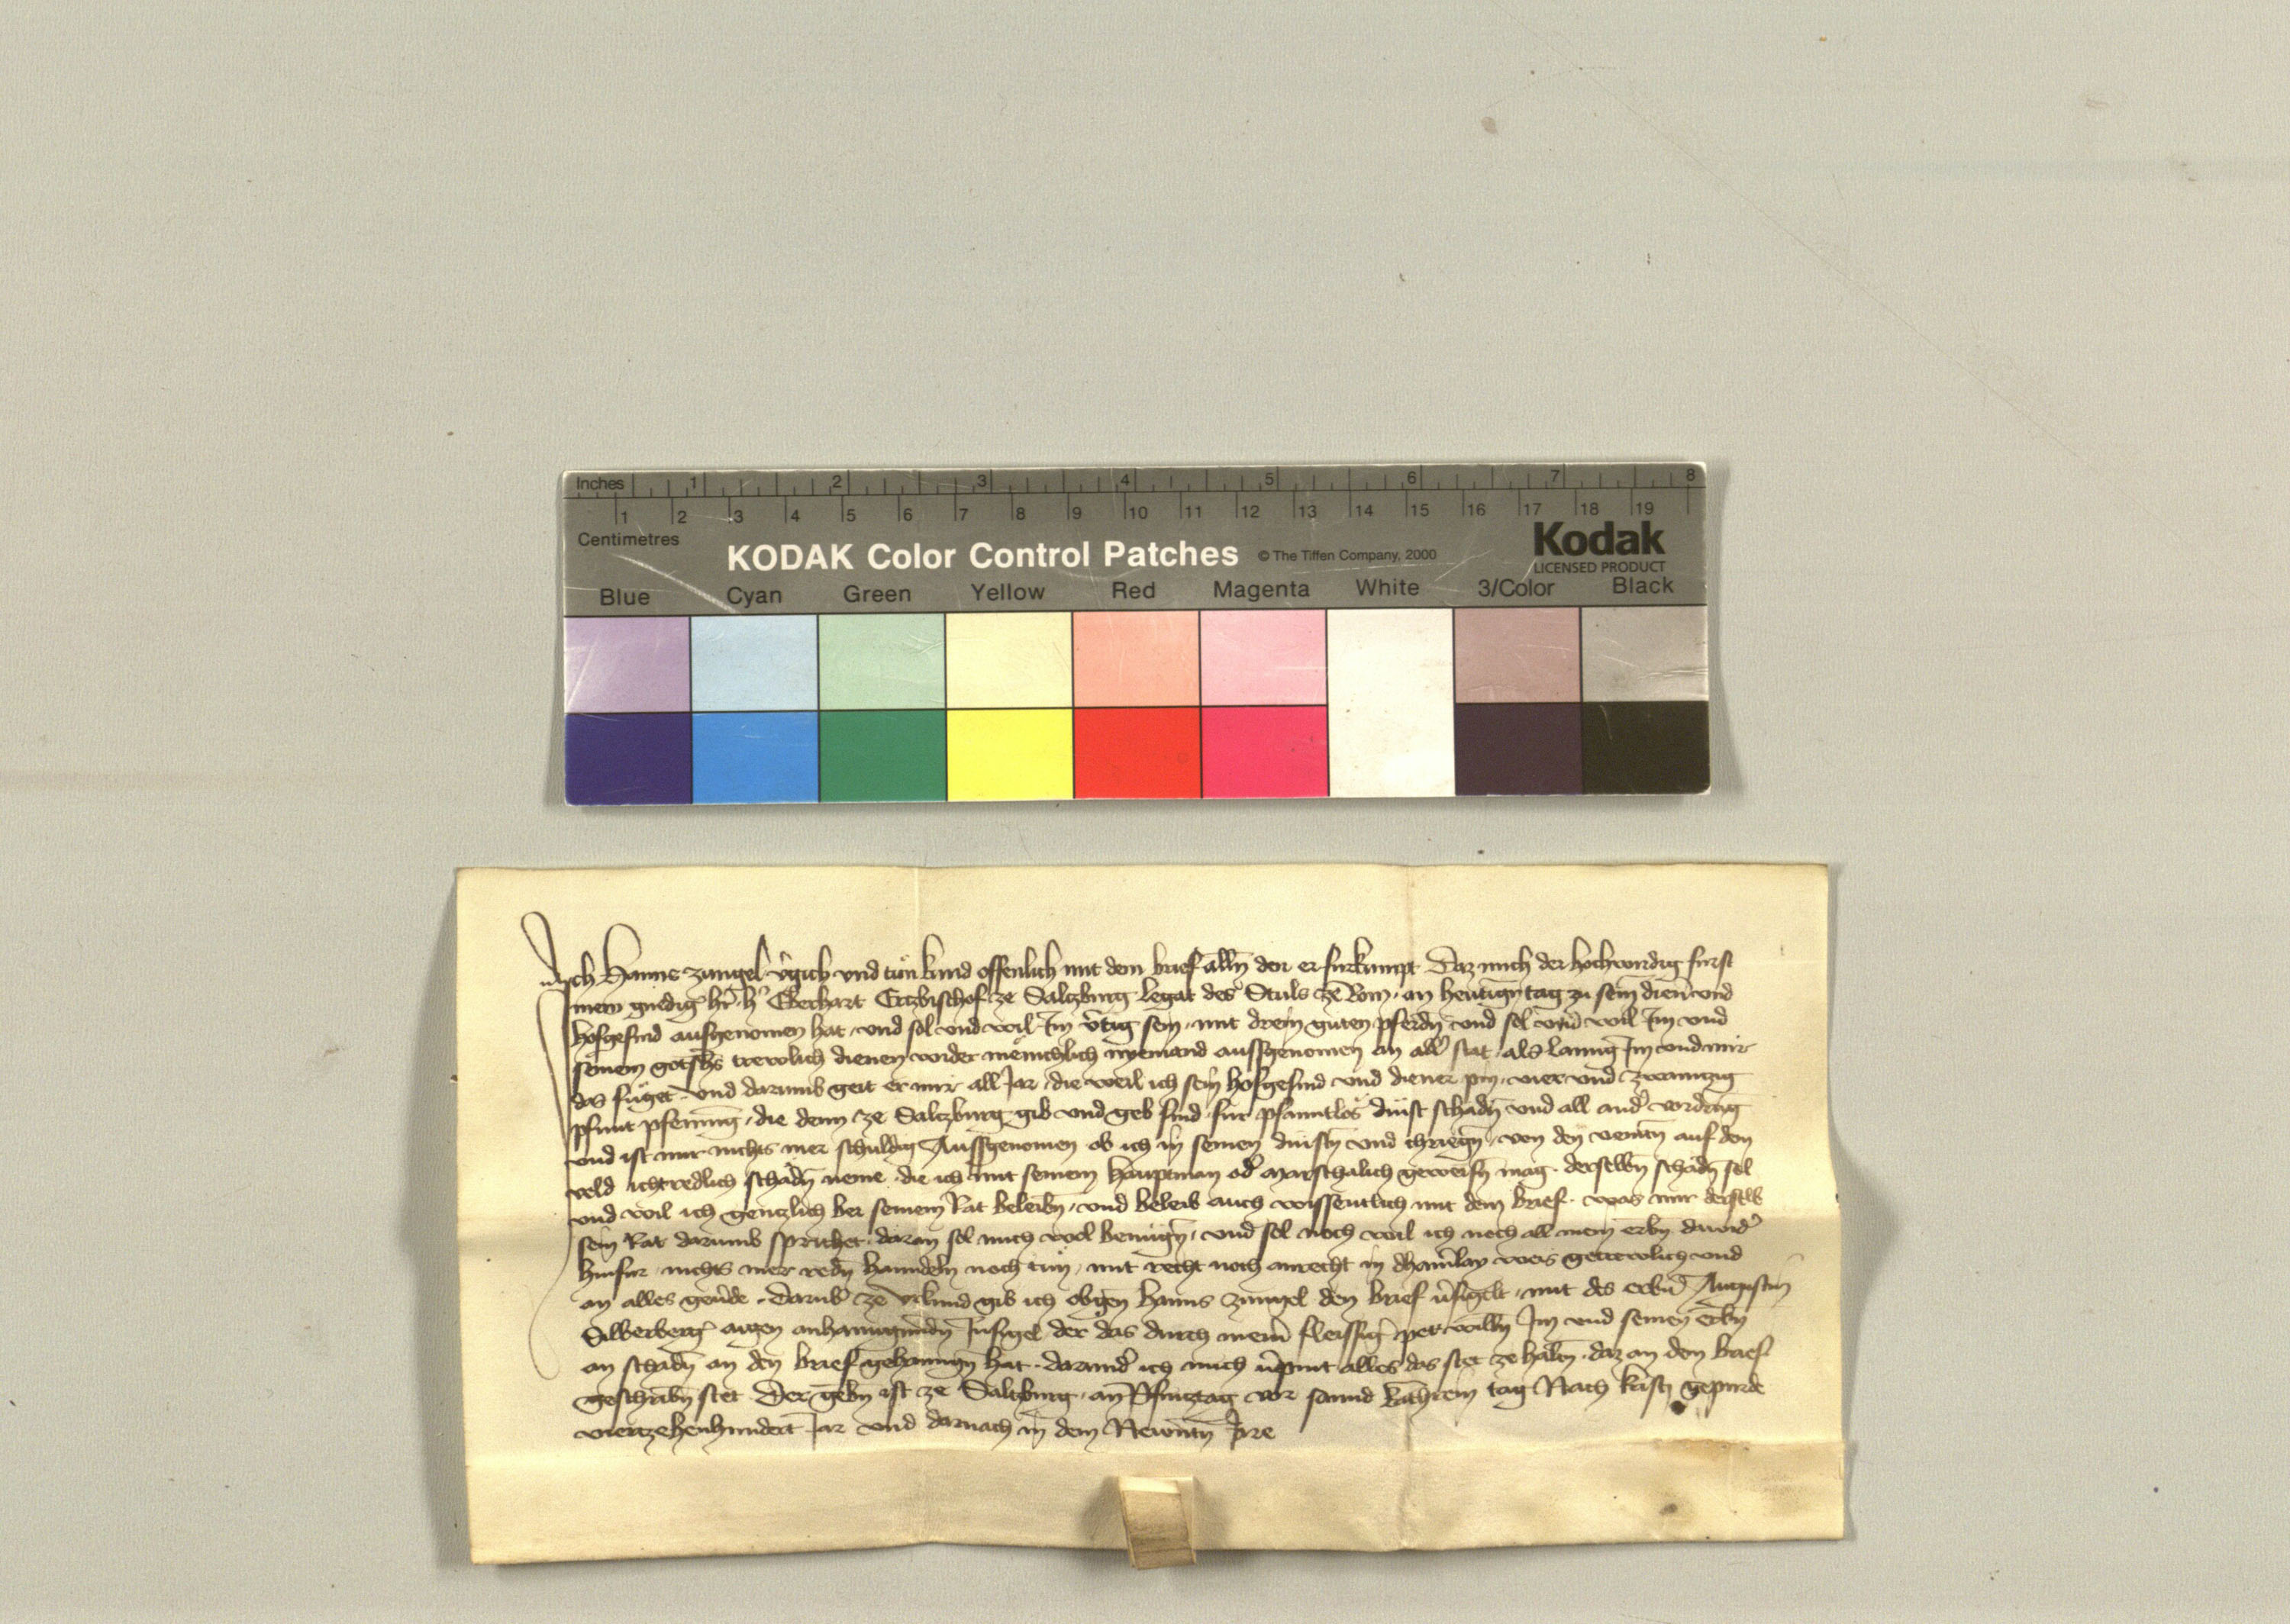 Inches 1 2 3 4 5 6 7 8
1 2 3 4 5 6 7 8 9 10 11 12 13 14 15 16 17 18 19
Centimetres
KODAK Color Control Patches © The Tiffen Company, 2000 Kodak
LICENSED PRODUCT
Blue Cyan Green Yellow Red Magenta White 3/Color Black
Ich Hanns Zungel v̾gich vnd tun kund offenlich mit dem brief alln̄ den er furkumpt Daz mich der hochwirdig furst
mein gnedig̾ hr̄ h̾ Eberhart Ertzbischof ze Saltzburg Legat des Stuls ze Rom an hewtign̄ tag zu sein̄ dien̾ vnd
hofgesind aufgenomen hat vnd sol vnd wil Im v̾tig sein mit drein guten pferdn̄ vnd sol vnd wil Im vnd
seinem gotshs trewlich dienen wider mēinchlich nyemand aussgenomen an all̾ stat als lanng Im vnd mir
das füget vnd darumb geit er mir all Jar die weil ich sein hofgesind vnd diener pin vier vnd zwaintzig
pfunt pfening die denn ze Saltzburg gib vnd geb sind für pfanntlos dinst schadn̄ vnd all and̾ vordrūg
vnd ist mir nichts mer schuldig Aussgenomen ob ich in seinen dinstn̄ vnd chriegn̄ von den veintn̄ auf dem
veld icht redlich schadn̄ neme die ich mit seinem hauptman od̾ Marschalich geweisn̄ mag derselbn̄ schadn̄ sol
vnd wil ich gentzlich bei seinem Rat beleibn̄ vnd beleib auch wissentlich mit dem brief was mir derselb
sein Rat darumb sprichet daran sol mich wol benugn̄ vnd sol noch wil ich noch all mein erbn̄ dawid̾
hinfur nichts mer redn̄ hanndeln noch tun mit recht noch anrecht in dhainlay weis getrewlich vnd
an alles geu̾de Darub̾ ze vrkund gib ich obgen̄ Hanns Zungel den brief v̾sigelt mit des erbn̄ Augustin
Silberberg̾ aigen anhanngundn̄ Insigel der das durch meīn̄ fleissig̾ pet willn̄ Im vnd seinen erbn̄
an schadn̄ an den brief gehanngn̄ hat darund̾ ich mich v̾pint alles das stet ze haltn̄ daz an dem brief
geschribn̄ stet Der gebn̄ ist ze Saltzburg am Pfintztag vor sannd kathrein tag Nach kristi gepurde
viertzehenhundert Jar vnd darnach in dem Newntn̄ Jare